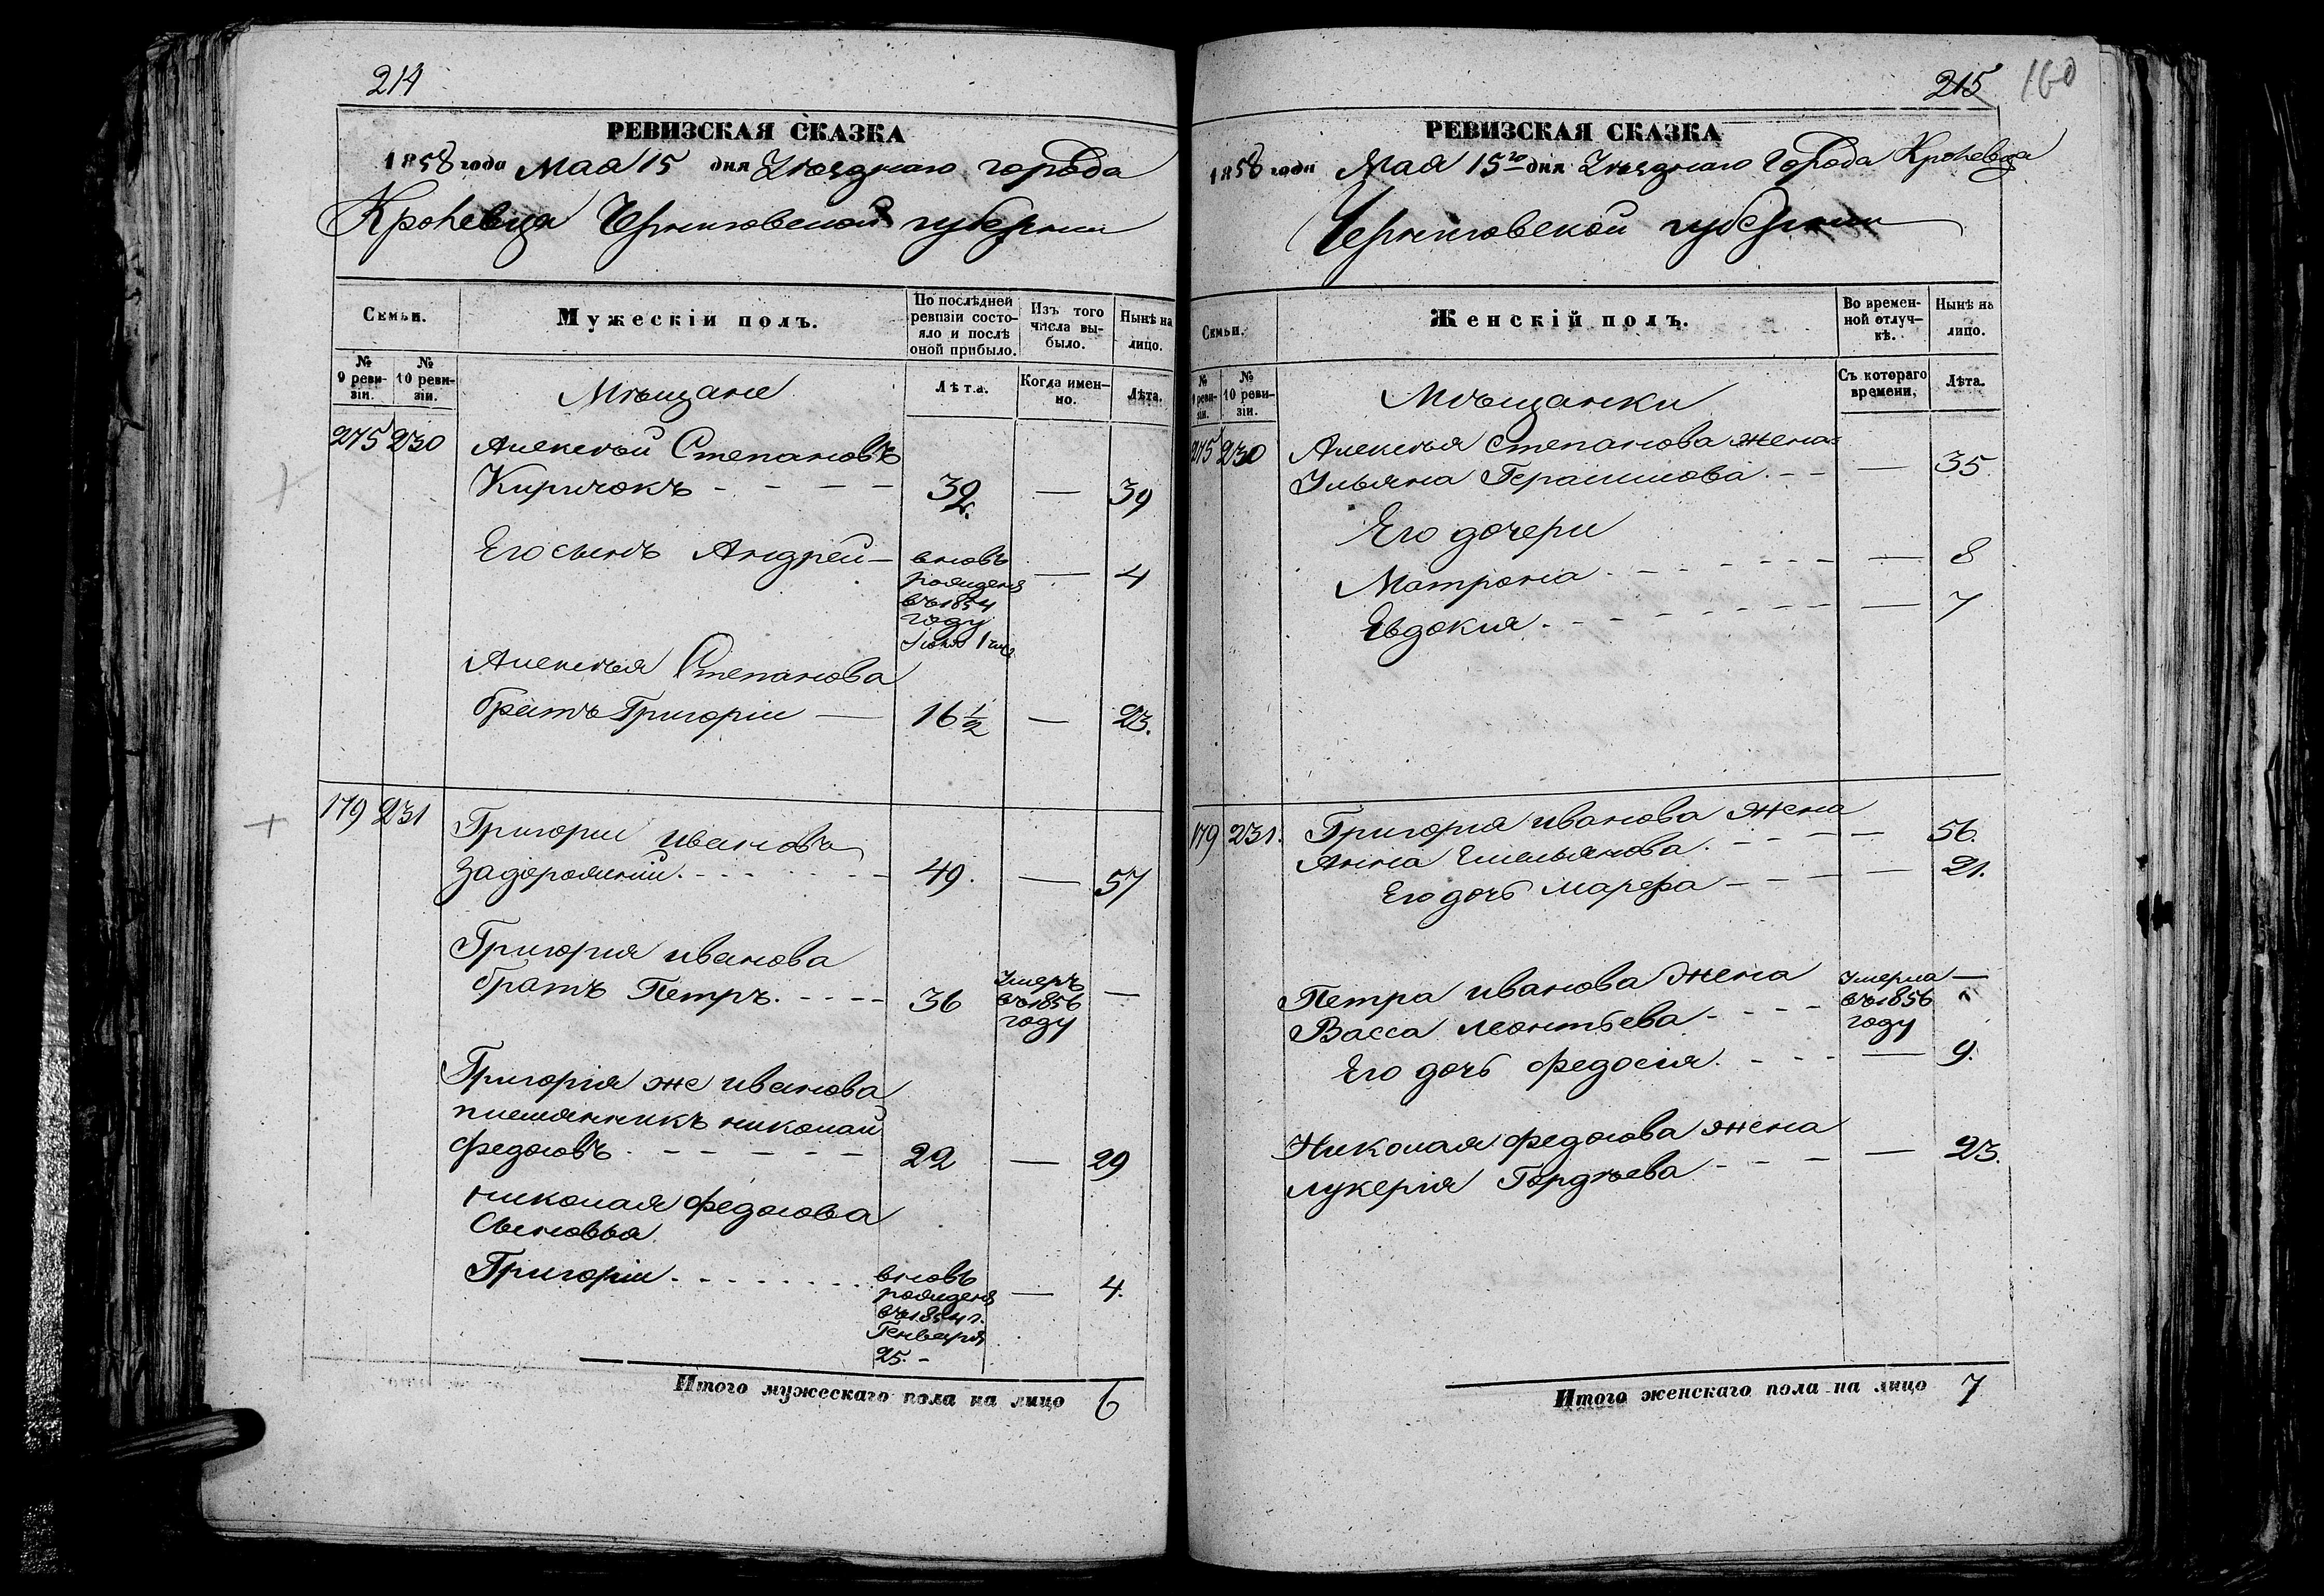 214
РЕВИЗСКАЯ СКАЗКА
1858 года Мая 15 дня Уѣзднаго города
Кролевца Черниговской губерніи
Семьи.
Мужескій полъ.
По послѣдней ревизіи состояло и послѣ оной прибыло.
Изъ того числа выбыло.
Нынѣ на лицо.
№ 9 ревизіи.
№ 10 ревизіи.
Мѣщане
Лѣта.
Когда именно.
Лѣта.
275 230 Алексѣй Степановъ
Киричокъ - - - - 32. — 39
Его сынъ Андрей — вновь — 4
рожденъ
въ 1854
году
Алексѣя Степанова
братъ Григорій — 16½ — 23.
179 231 Григорій Ивановъ
Задорожній. - - - - 49. — 57
Григорія Иванова
братъ Петръ. - - - - 36 Умеръ —
въ 1856
году
Григорія же Иванова
племянникъ Николай
Федоровъ - - - - - 22 — 29
Николая Федорова
Сыновья
Григорій. - - - - - вновь — 4.
рожденъ
въ 1854 г.
Генваря
25. -
Итого мужескаго пола на лицо 6
215
160
РЕВИЗСКАЯ СКАЗКА
1858 года Мая 15го дня Уѣзднаго Города Кролевца
Черниговской губерніи
Семьи.
Женскій полъ.
Во временной отлучкѣ.
Нынѣ на лицо.
№ 9 ревизіи.
№ 10 ревизіи.
Мѣщанки
Съ котораго времени.
Лѣта.
275 230 Алексѣя Степанова жена
Ульяна Герасимова. - - — 35
Его дочери
Матрона. - - - - - — 8
Евдокия. - - - - - — 7
179 231. Григорія Иванова жена
Анна Емельянова. - - - — 56.
Его дочь Марефа - - - — 21.
Петра Иванова Жена Умерла —
Васса Леонтьева - - - - въ 1856
году
Его дочь Федосія. - - - — 9.
Николая Федорова жена
Лукерія Гордѣева - - - — 23.
Итого женскаго пола на лицо 7